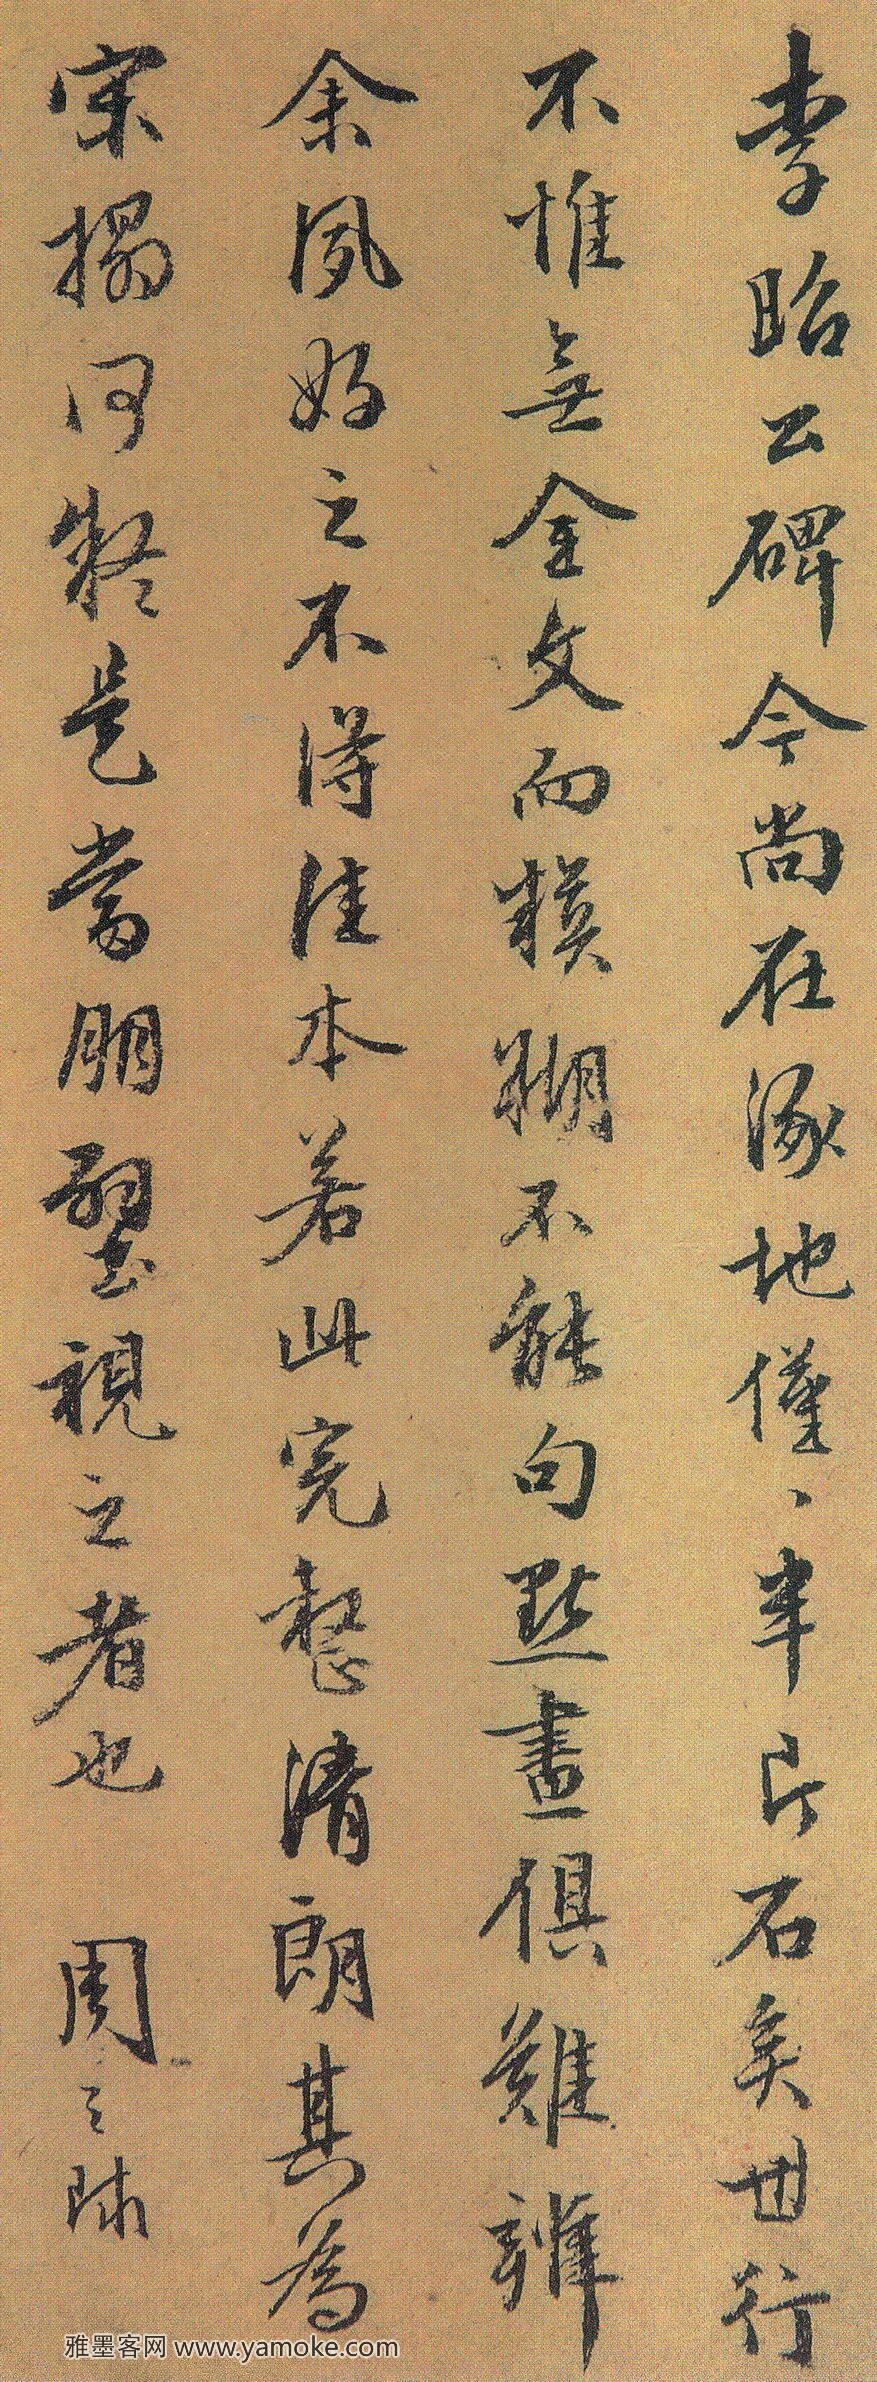 李昭公碑今尚在涿地僅、半片石矣世行
不惟無全文而模糊不能句點畫俱難辨
余夙好之不得佳本若此完整清朗其為
宋搨何疑是當朋璧視之者也 周之球
雅墨客网 www.yamoke.com